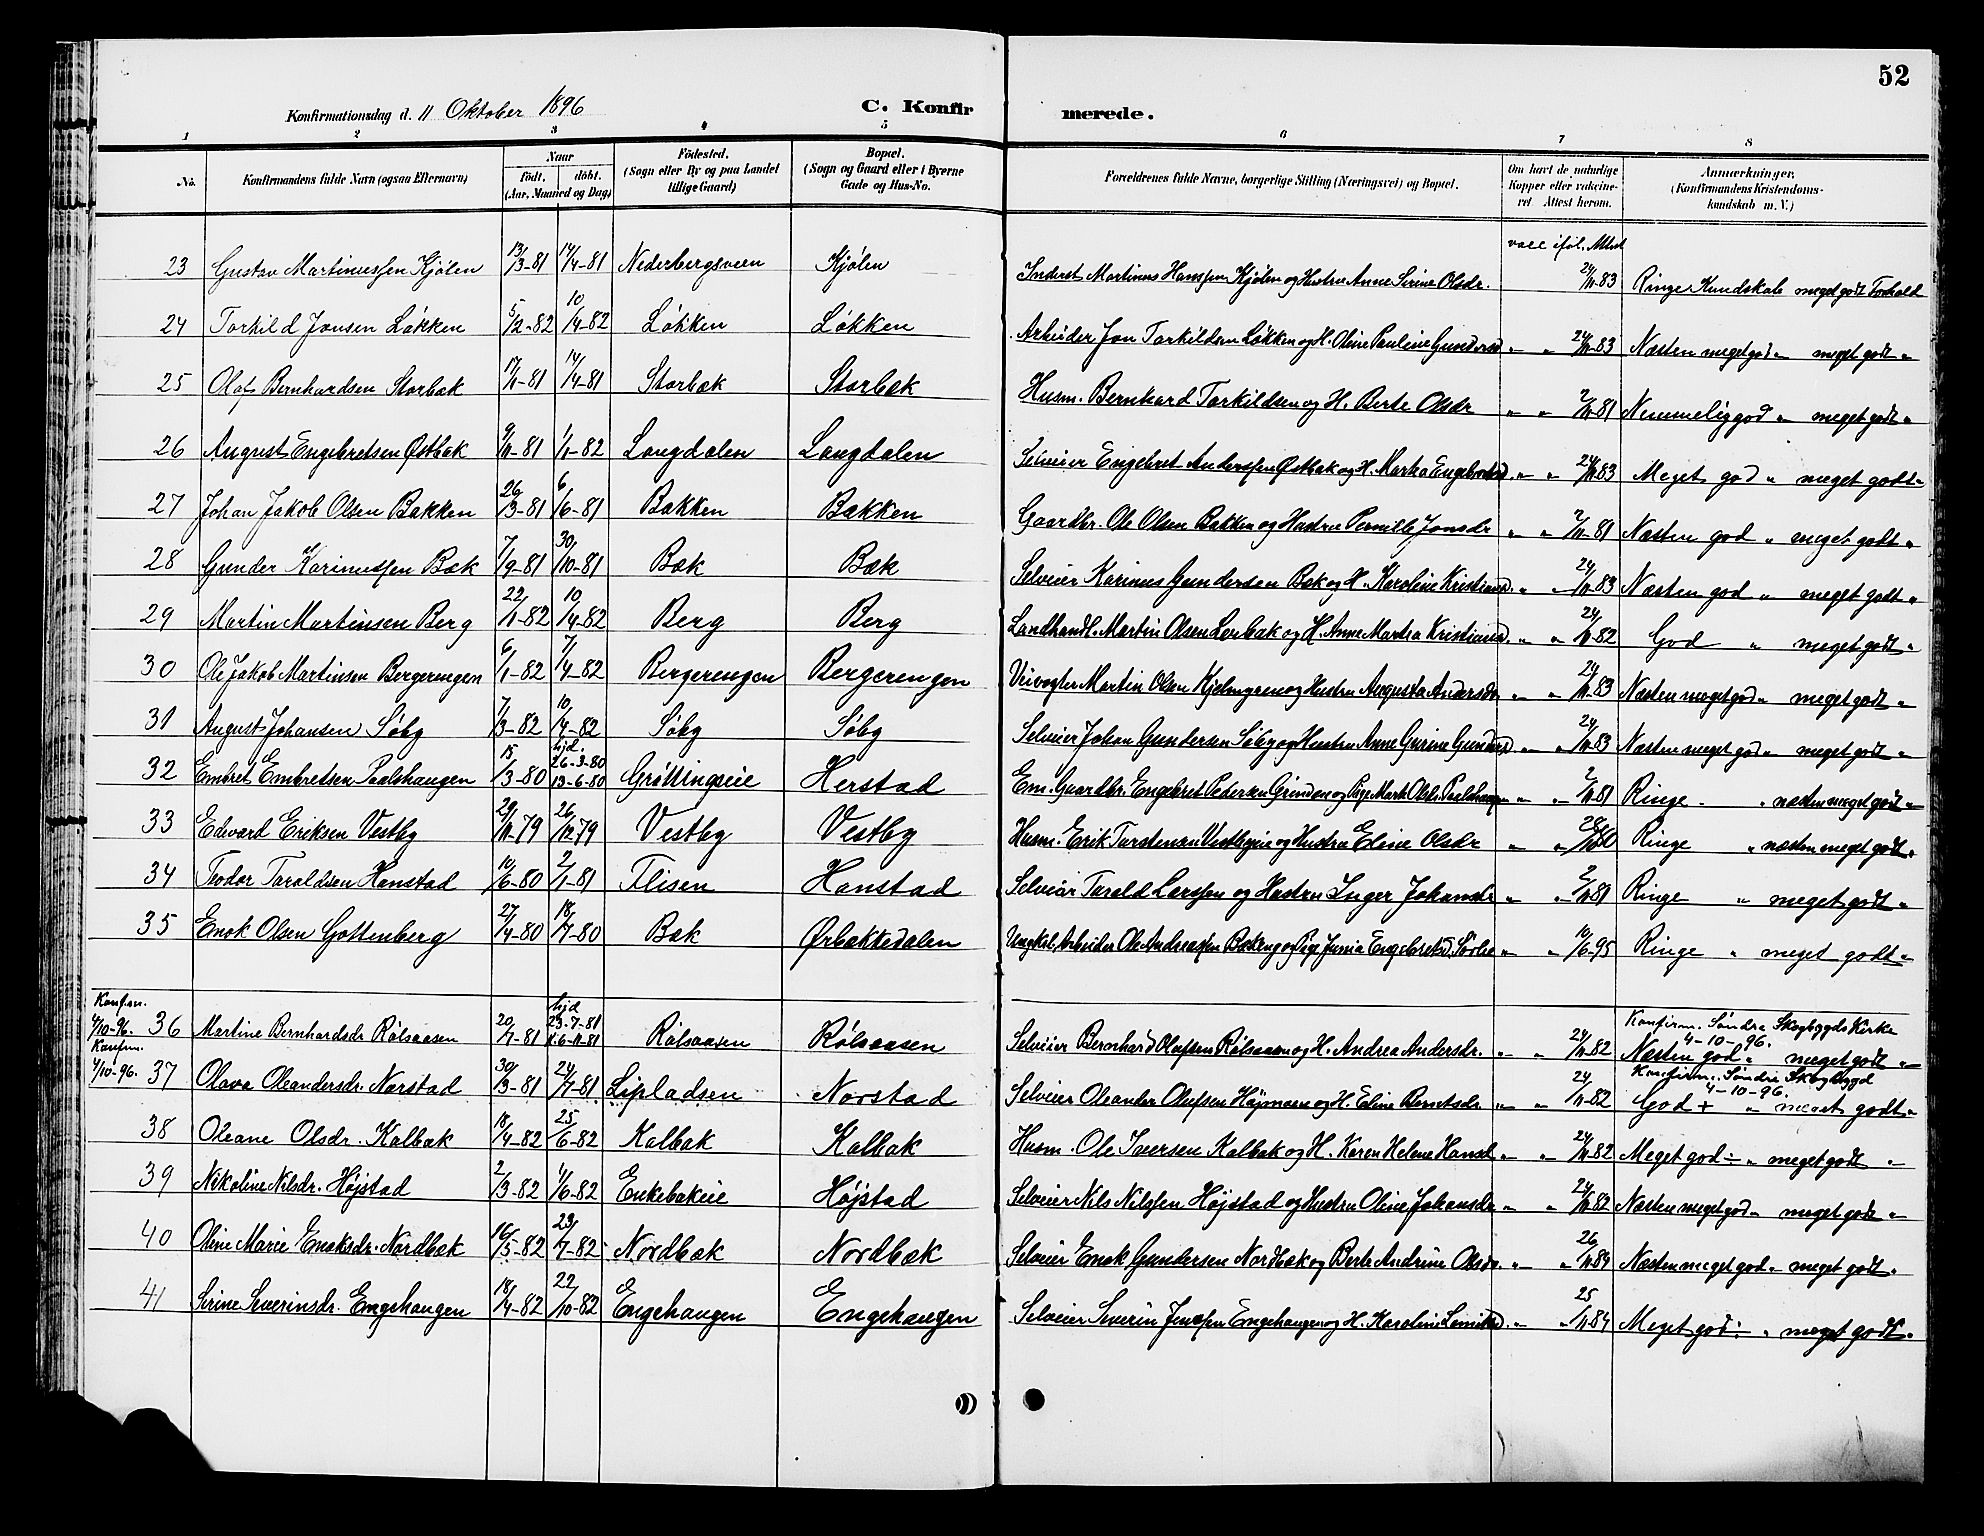 52
Konfirmationsdag d. 11 Oktober 1896 C. Konfir merede.
1 2 3 4 5 6 7 8
No. Konfirmandens fulde Navn (ogsaa Efternavn) Naar født. døbt. (Aar, Maaned og Dag) Fødested. (Sogn eller By og paa Landet tillige Gaard) Bopæl. (Sogn og Gaard eller i Byerne Gade og Hus-No. Forældrenes fulde Navne, borgerlige Stilling (Næringsvei) og Bopæl. Om havt de naturlige Kopper eller vakcineret. Attest herom. Anmærkninger. (Konfirmandens Kristendomskundskab m. V.)
vacc. iføl. Attest
23 Gustav Martinussen Kjølen 13/3-81 14/4-81 Nederbergsveen Kjølen Inderst Martinus Hanssen Kjølen og Hustru Anne Sirine Olsdr. 24/11-83 Ringe Kundskab meget godt Forhold
24 Torkild Jonsen Løkken 5/2-82 10/4-82 Løkken Løkken Arbeider Jon Torkildsen Løkken og H. Oline Pauline Gundersd. " " 24/11-83 Næsten meget god " meget godt "
25 Olaf Bernhardsen Storbæk 17/1-81 14/4-81 Storbæk Storbæk Husm. Bernhard Torkildsen og H. Berte Olsdr " " 2/11-81 Nemmelig god " meget godt "
26 August Engebretsen Østbæk 9/11-81 1/1-82 Langdalen Langdalen Selveier Engebret Anderssen Østbæk og H. Martea Engebretsd. " " 24/11-83 Meget god " meget godt "
27 Johan Jakob Olsen Bakken 26/3-81 6/6-81 Bakken Bakken Gaardbr. Ole Olsen Bakken og Hustru Pernille Jonsdr " " 2/11-81 Næsten god " meget godt "
28 Gunder Karinussen Bæk 7/9-81 30/10-81 Bæk Bæk Selveier Karinus Gundersen Bæk og H. Karoline Kristiansd. " " 24/11-83 Næsten god " meget godt "
29 Martin Martinsen Berg 22/1-82 10/4-82 Berg Berg Landhandl. Martin Olsen Lerbak og H. Anne Martea Kristiansd. " " 24/11-82 God " meget godt "
30 Ole Jakob Martinsen Bergerengen 6/1-82 7/4-82 Bergerengen Bergerengen Martin Olsen og Hustru Augusta Andersdr " " 24/11-83 Næsten meget god " meget godt "
31 August Johansen Søby 7/3-82 10/4-82 Søby Søby Selveier Johan Gundersen Søby og Hustru Anne Gurine Gundersd " " 24/11-83 Næsten meget god " meget godt "
32 Embret Embretsen Paalshaugen 15/3-80 hjd. 26-3-80 13-6-80 Grøttingseie Herstad Em. Gaardbr. Engebret Pedersen Grinden og Pige Marte Olsd. Paalshaugen " " 2/11-81 Ringe " næsten meget godt "
33 Edvard Eriksen Vestby 29/11-79 26/12-79 Vestby Vestby Husm. Erik Tarstensen Vestbyeie og Hustru Eline Olsdr " " 28/11-80 Ringe " næsten meget godt "
34 Teodor Taraldsen Hanstad 14/6-80 2/1-81 Flisen Hanstad Selveier Tarald Larssen og Hustru Inger Johansdr " " 2/11-81 Ringe " meget godt "
35 Enok Olsen Gottenberg 27/4-80 18/7-80 Bæk Ørbækkedalen Ungkel. Arbeider Ole Andreassen Bækeng og Pige Junia Engebretsd. Sørlie " " 10/6-95 Ringe " meget godt "
Konfirm. 4/10-96. 36 Martine Bernhardsdr Rølsaasen 20/7-81 hjd 23-7-81 6-11-81 Rølsaasen Rølsaasen Selveier Bernhard Olufsen Rølsaasen og H. Andrea Andersdr. " " 24/11-82 Konfirm. Søndre Skogbygds Kirke 4-10-96. Næsten god " meget godt "
Konfirm. 4/10-96. 37 Olava Oleandersdr. Norstad 30/3-81 24/7-81 Lipladsen Norstad Selveier Oleander Olufsen Højmoen og H. Eline Berntsdr. " " 24/11-82 Konfirm. Søndre Skogbygd 4-10-96. God + " meget godt "
38 Oleane Olsdr. Kalbæk 18/4-82 25/6-82 Kalbæk Kalbæk Husm. Ole Iversen Kalbæk og H. Karen Helene Hansd. " " 24/11-82 Meget god ÷ " meget godt "
39 Nikoline Nilsdr. Højstad 2/3-82 4/6-82 Enkebækeie Højstad Selveier Nils Nilssen Højstad og Hustru Oline Johansdr " " 24/11-82 Næsten meget god " meget godt "
40 Oline Marie Enoksdr. Nordbæk 16/5-82 23/7-82 Nordbæk Nordbæk Selveier Enok Gundersen Nordbæk og Berte Andrine Olsdr. " " 26/11-84 Næsten meget god " meget godt "
41 Sirine Severinsdr. Engehaugen 18/4-82 22/10-82 Engehaugen Engehaugen Selveier Severin Jenssen Engehaugen og H. Karoline " " 25/11-84 Meget god ÷ " meget godt "